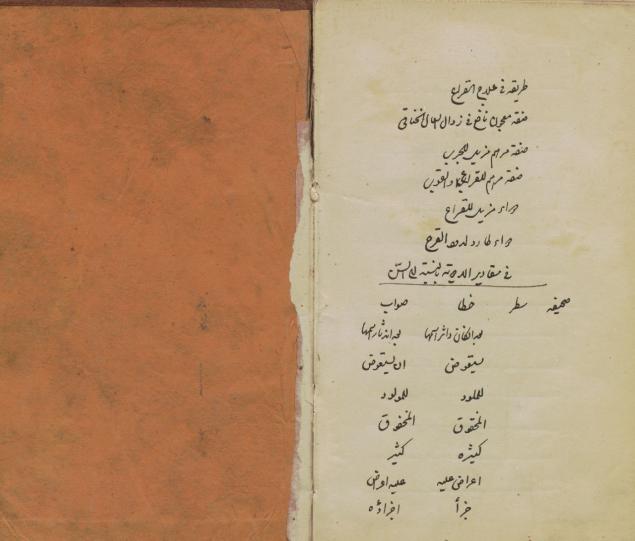 طريقه في علاج القراع
صفة معجون نافع في زوال السعال الخناقي
صفة مرهم مزيل للجرب
صفة مرهم للقراع والقوب
دواء مزيل للقراع
دواء طارد لدود القرع
في مقادير الادوية بالنسبة الى السن
صحيفه سطر خطا صواب
بعد اندثار اسمها
يستعوض ان يستعوض
للملود للمولود
المحقوق المحقوق
كثيره كثير
اعراض عليه عليه اعراض
جزأ اجزاؤه